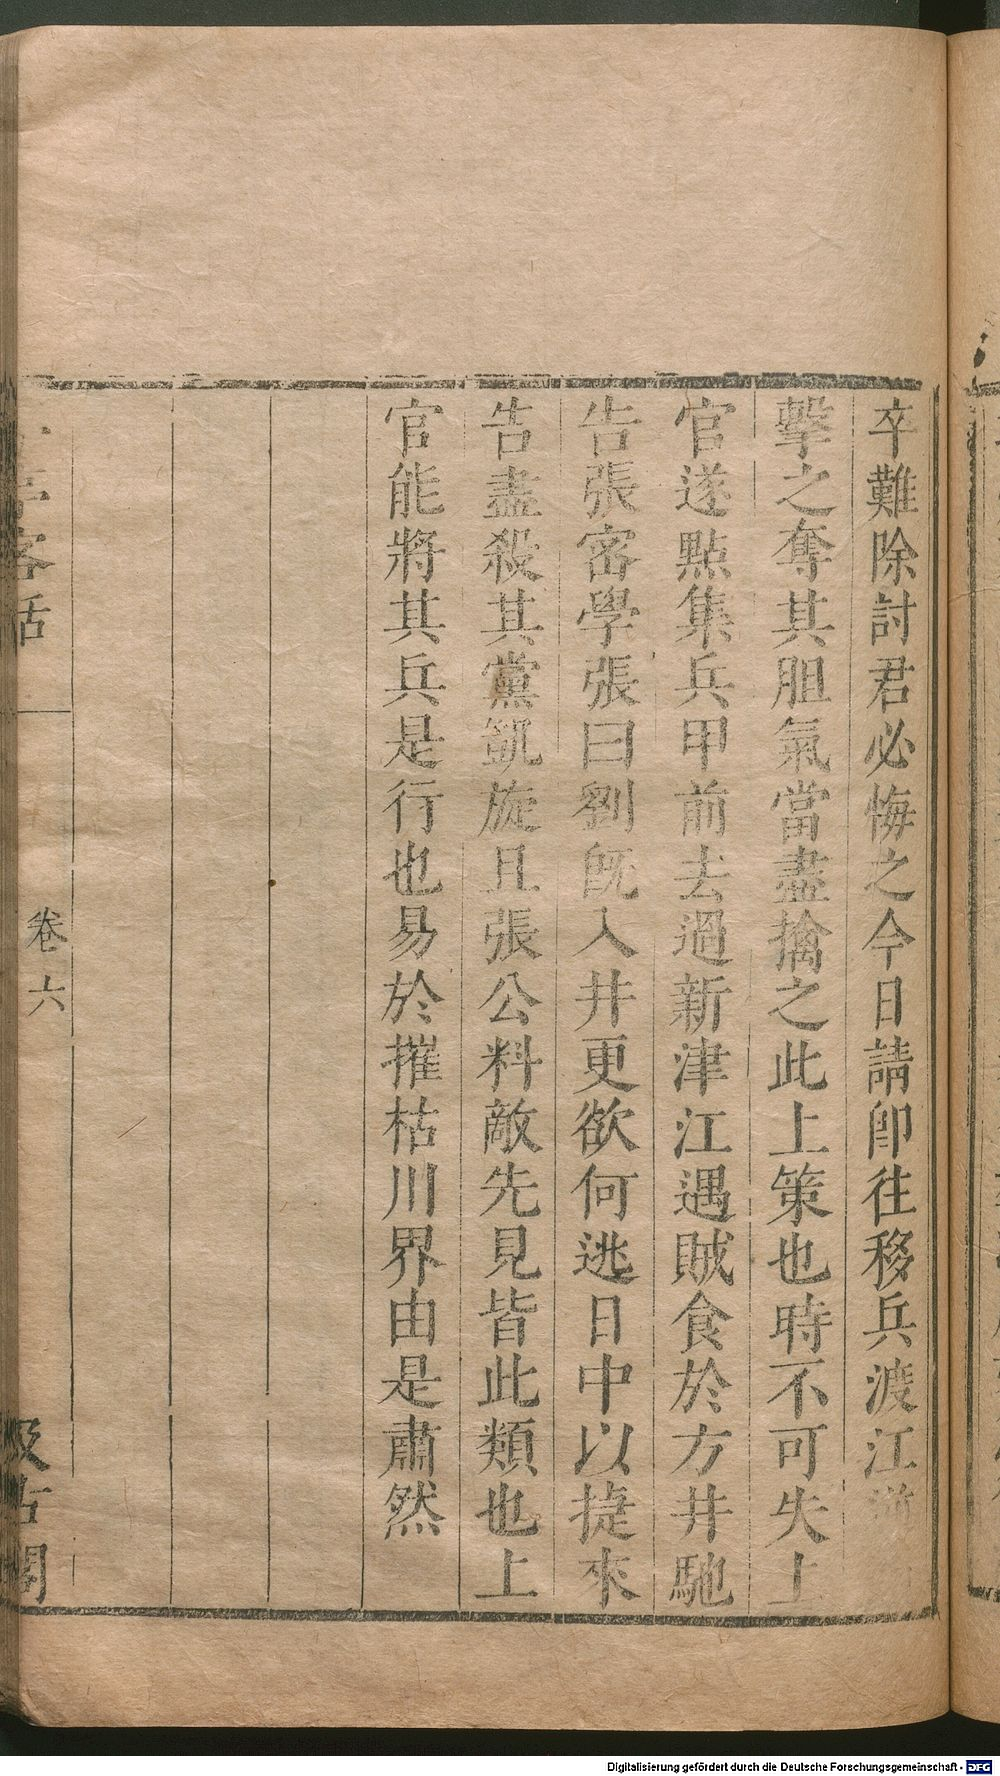 卒難除討君必悔之今日請卽往移兵渡江
擊之奪其胆氣當盡擒之此上策也時不可失上
官遂點集兵甲前去過新津江遇賊食於方井馳
告張密學張曰劉旣入井更欲何逃日中以捷來
告盡殺其黨凱旋且張公料敵先見皆此類也上
官能將其兵是行也易於摧枯川界由是肅然
客話
卷六
汲古閣
Digitalisierung gefördert durch die Deutsche Forschungsgemeinschaft - DFG